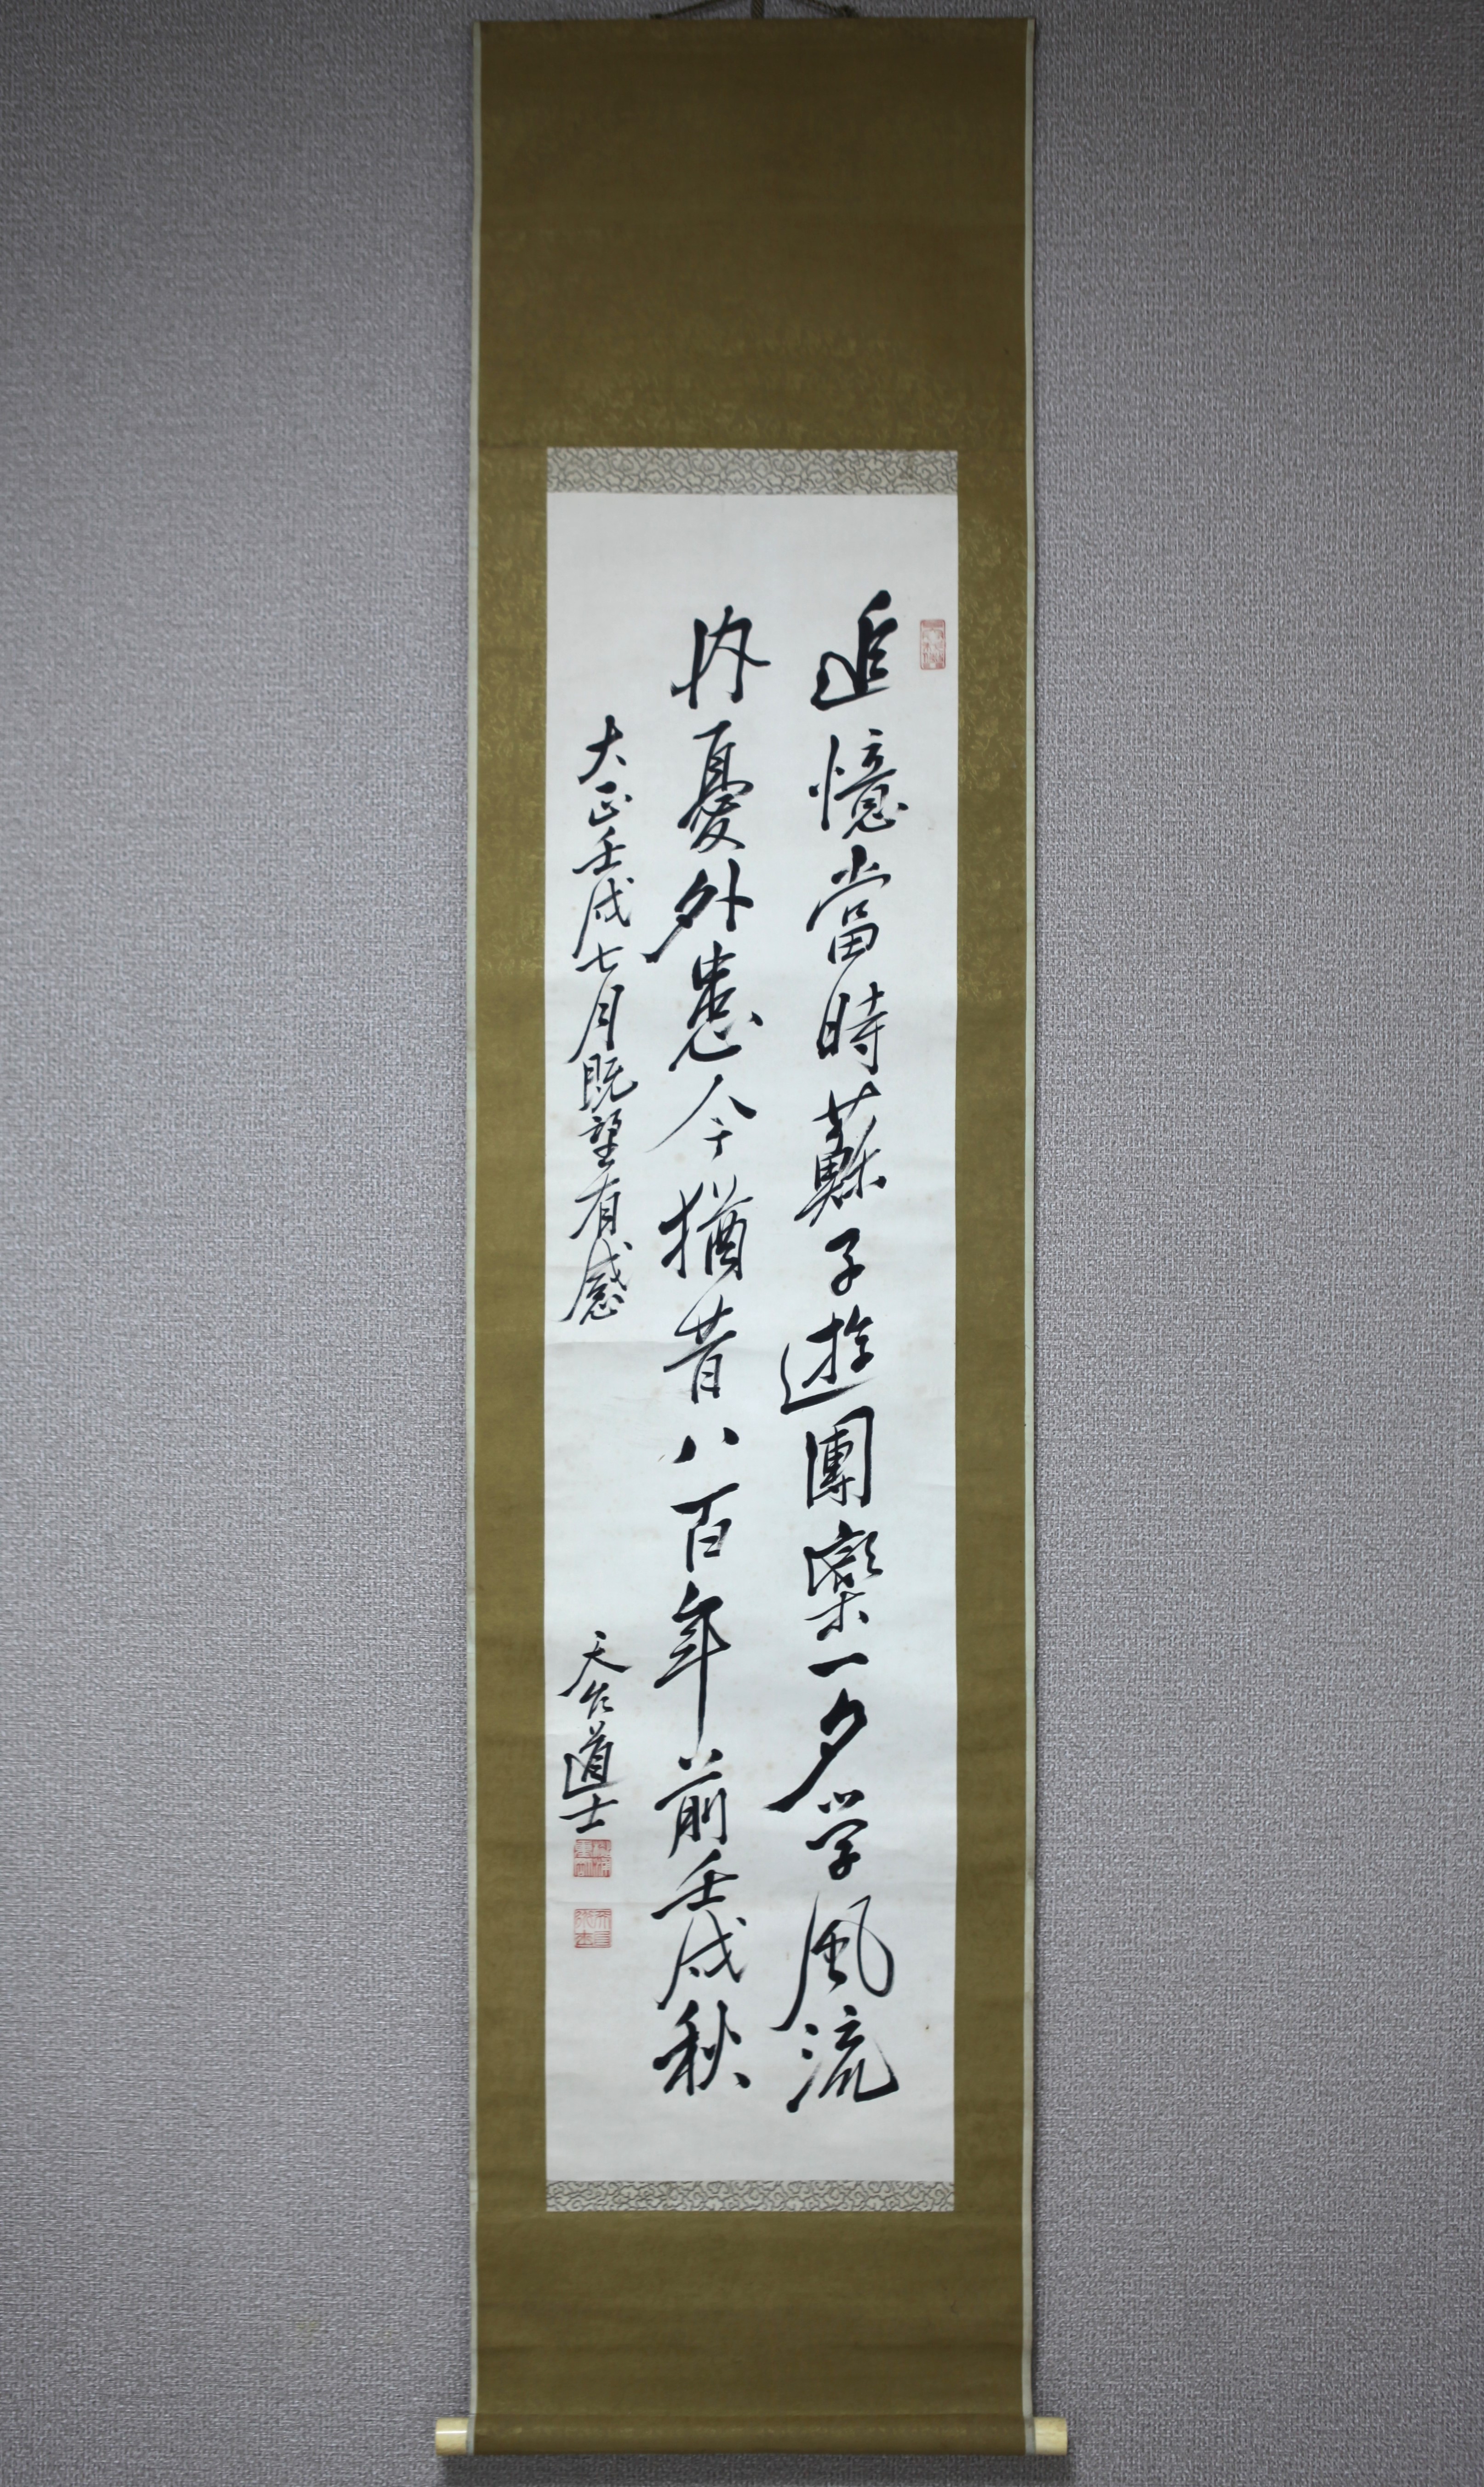 追憶當時蘇子遊團欒一夕学風流
内憂外患今猶昔八百年前壬戌秋
大正壬戌七月既望有感
天台道士